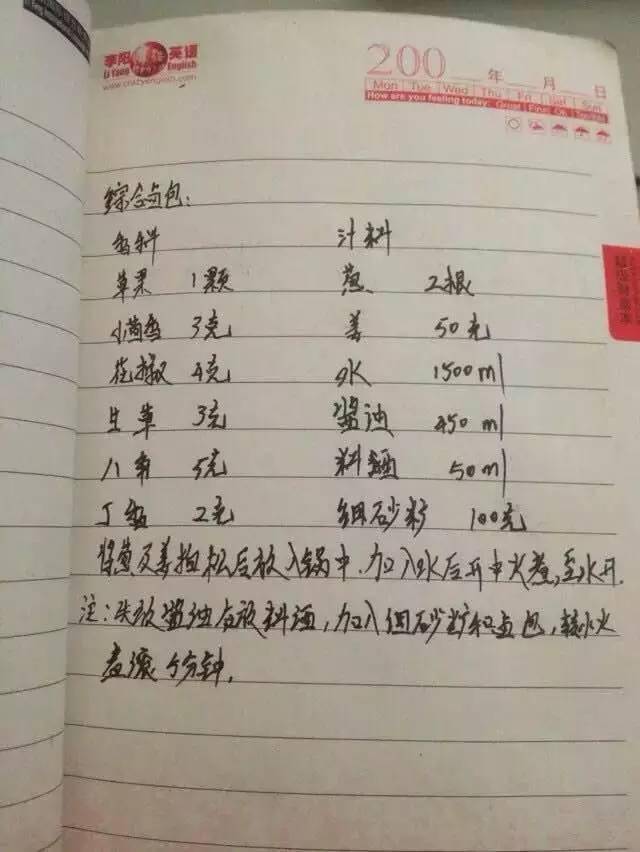 李阳 英语
Li Yang English
www.crazyenglish.com
200 年 月 日
Mon Tue Wed Thu Fri Sat Sun
How are you feeling today: Great Fine Ok Terrible
综合卤包:
香料 汁料
草果 1颗 葱 2根
小茴香 3克 姜 50克
花椒 4克 水 1500ml
甘草 3克 酱油 450ml
八角 5克 料酒 50ml
丁香 2克 细砂糖 100克
将葱及姜拍松后放入锅中,加入水后开中火煮,至水开.
注:先放酱油后放料酒,加入细砂糖和卤包,转小火
煮滚 分钟.